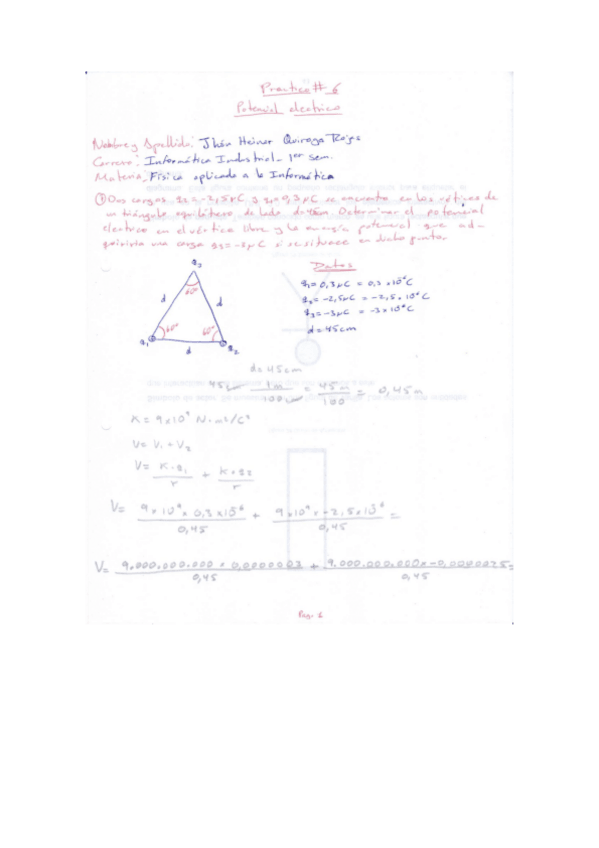 Practico # 6
Potencial electrico
Nombre y Apellido: Jhón Heiner Quiroga Rojas
Carrera: Informática Industrial - 1er sem.
Materia: Física aplicada a la Informática
① Dos cargas q₂=-2,5μC y q₁=0,3μC se encuentra en los vértices de
un triángulo equilátero de lado d=45cm. Determinar el potencial
electrico en el vértice libre y la energía potencial que ad-
quiriría una carga q₃=-3μC si se situase en dicho punto.
q₃
60°
d d
60° 60°
q₁ d q₂
Datos
q₁= 0,3μC = 0,3 x 10⁻⁶C
q₂= -2,5μC = -2,5 x 10⁻⁶C
q₃= -3μC = -3 x 10⁻⁶C
d= 45cm
d= 45cm
1m / 100cm = 45m / 100 = 0,45m
K= 9x10⁹ N·m²/C²
V= V₁ + V₂
V= K·q₁ / r + K·q₂ / r
V= 9x10⁹ x 0,3x10⁻⁶ / 0,45 + 9x10⁹ x -2,5x10⁻⁶ / 0,45 =
V= 9.000.000.000 x 0,0000003 / 0,45 + 9.000.000.000 x -0,0000025 / 0,45 =